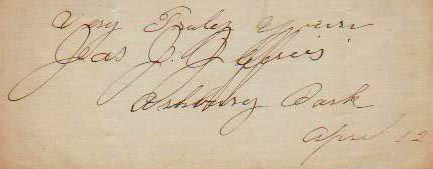 Very Truly Yours
Jas J. Jeffries
Asbury Park
April 12